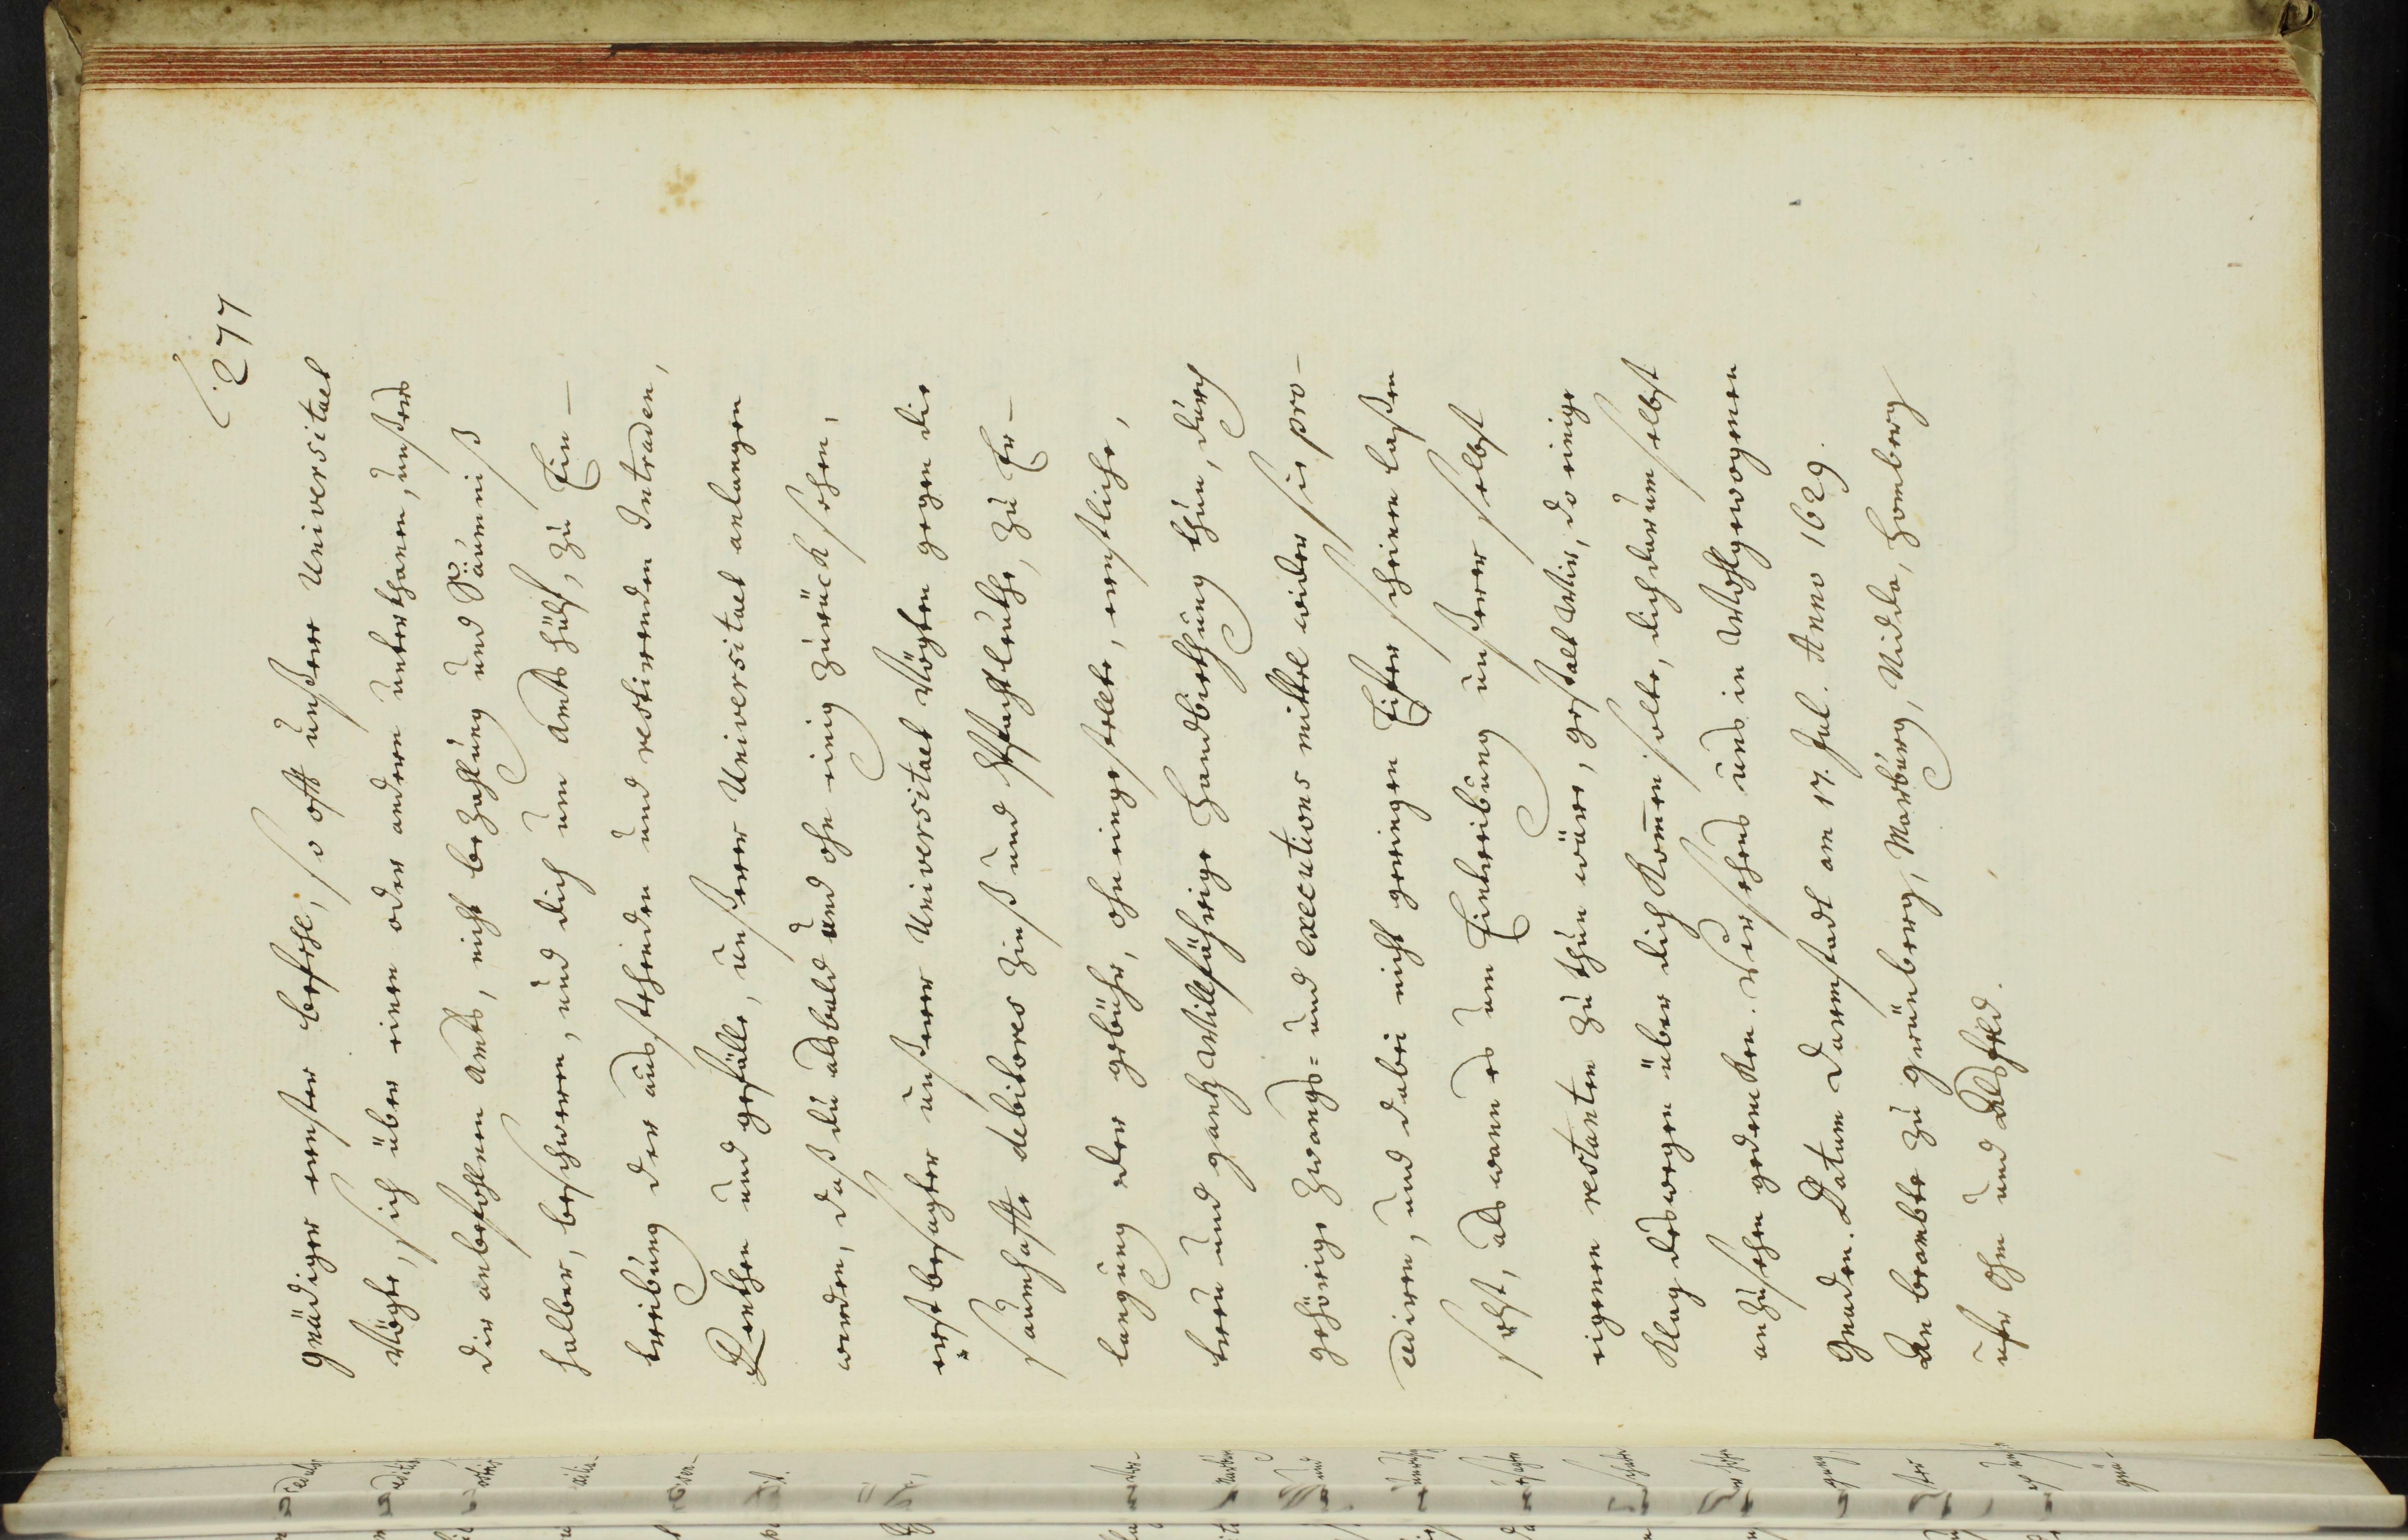 277
gnädiger ernster befehl, so offt unserer Universitaet
Vögte, sich über einen oder andern unterthanen, unsers
dir anbefohlnen Ambts, nicht bezahlung und Säumniß
halber, beschweren, und dich um Ambts hülff, zu Ein-
treibung der ausstehenden und restirenden Intraden,
Renthen und gefälle, unserer Universitaet anlangen
werden, daß du alsbald und ohn einig zurück sehen,
erstbesagter unserer Universitaet Vögten gegen die
saumhaffte debitores Zinß und Pfachtleuthe, zu Er-
langung der gebühr, ohneingestellte, ernstliche,
treu und gantz Willfährige Handbiethung thun, durch
gehörige Zwangs= und executions mittel wider sie pro-
cediren, und dabei nicht geringen Eifer scheinen laßen
sollst, als wann es um Eintreibung unserer selbst
eigenen restanten zu thun wäre, gestalt Wir, do einige
Klag deswegen über dich kom̅en solte, dich darum selbst
anzusehen gedencken. Versehens uns in Wohlgewogenen
Gnaden. Datum Darmstadt am 17. Jul. Anno 1629.
An beambte zu Grünberg, Marburg, Nidda, Homberg
ufr Ohm und Alsfeld.